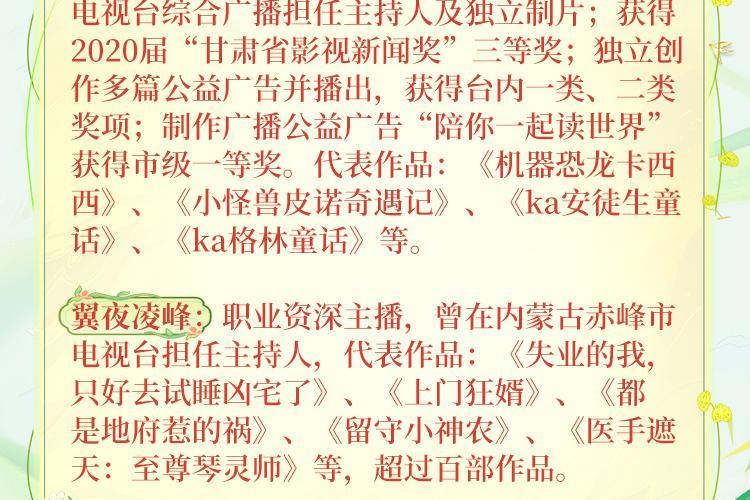 电视台综合广播担任主持人及独立制片；获得
2020届“甘肃省影视新闻奖”三等奖；独立创
作多篇公益广告并播出，获得台内一类、二类
奖项；制作广播公益广告“陪你一起读世界”
获得市级一等奖。代表作品：《机器恐龙卡西
西》、《小怪兽皮诺奇遇记》、《ka安徒生童
话》、《ka格林童话》等。
翼夜凌峰：职业资深主播，曾在内蒙古赤峰市
电视台担任主持人，代表作品：《失业的我，
只好去试睡凶宅了》、《上门狂婿》、《都
是地府惹的祸》、《留守小神农》、《医手遮
天：至尊琴灵师》等，超过百部作品。